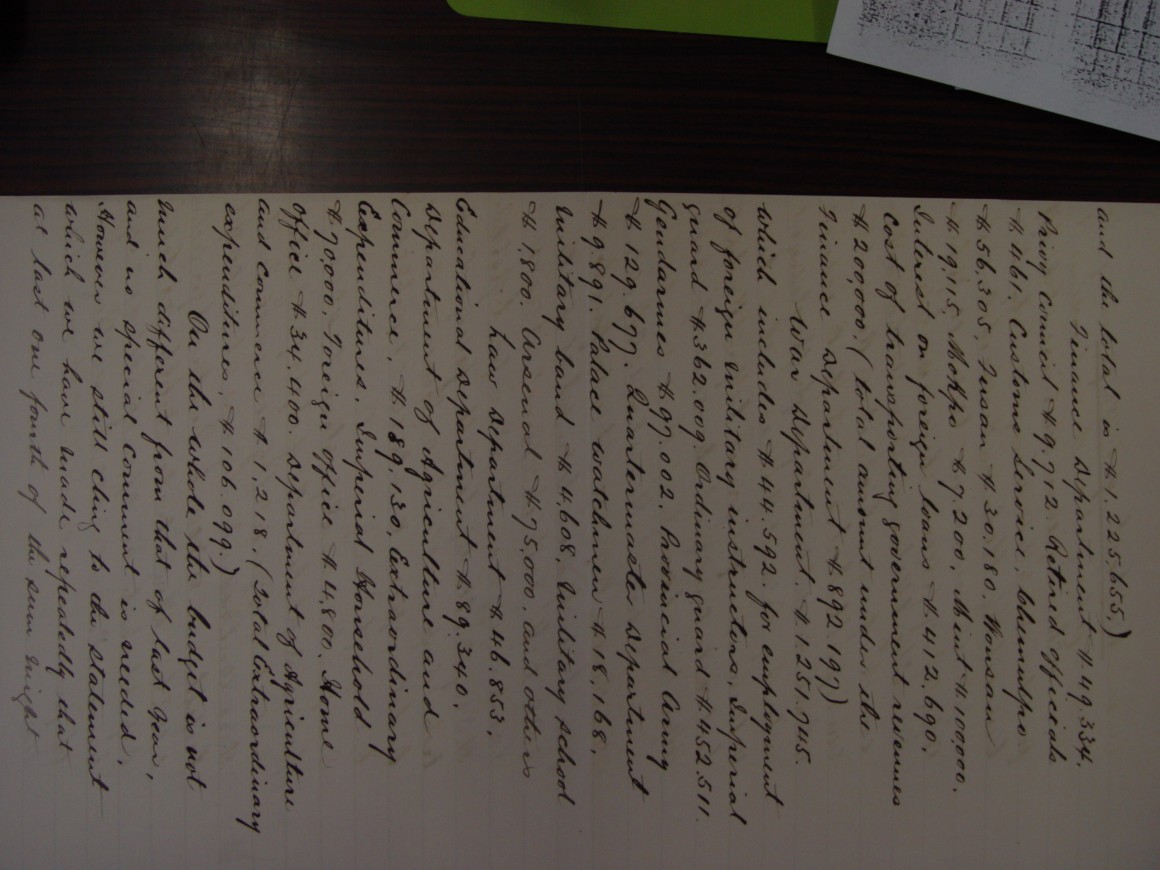 and the total is #1,225,655)
Finance Department #49.334.
Privy Council #9.712. Retired officials
#461. Customs Service, Chemulpo
#56,305, Fusan #30.180 Wonsan
#19,115, Mokpo #7,200. Mint #100000.
Interest on foreign loans #412.690.
Cost of transporting government revenues
#200,000 (total amount under the
Finance Department #892.197)
War Department. #1.251.745.
which includes #44.592 for employment
of foreign military instructors, Imperial
guard #362.009. Ordinary guard #452.511.
Gendarmes #97.002. Provincial Army
#129.677. Quartermaster Department
#9.891. Palace watchmen #18,168.
Military band #4,608. Military school
#1800. Arsenal #75,000. and others
Law Department #46.853.
Educational Department #89.340.
Department of Agriculture and
Commerce, #189,130, Extraordinary
Expenditures. Imperial Household
#70,000. Foreign office #4,800. Home
office #34.400. Department of Agriculture
and commerce #1,218, (Total Extraordinary
expenditures, #106.099.)
On the whole the budget is not
much different from that of last year,
and no special comment is needed.
However we still cling to the statement
which we have made repeatedly that
at last one fourth of the sum might